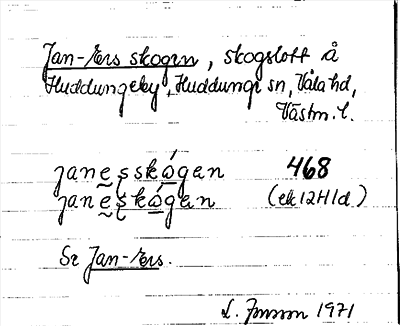 Jan-Ers skogen, skogslott å
Huddungeby, Huddunge sn, Våla hd,
Västm. l.
janesskógen 468
janeskógen (ek 12H1d)
Se Jan-Ers.
L. Jonsson 1971